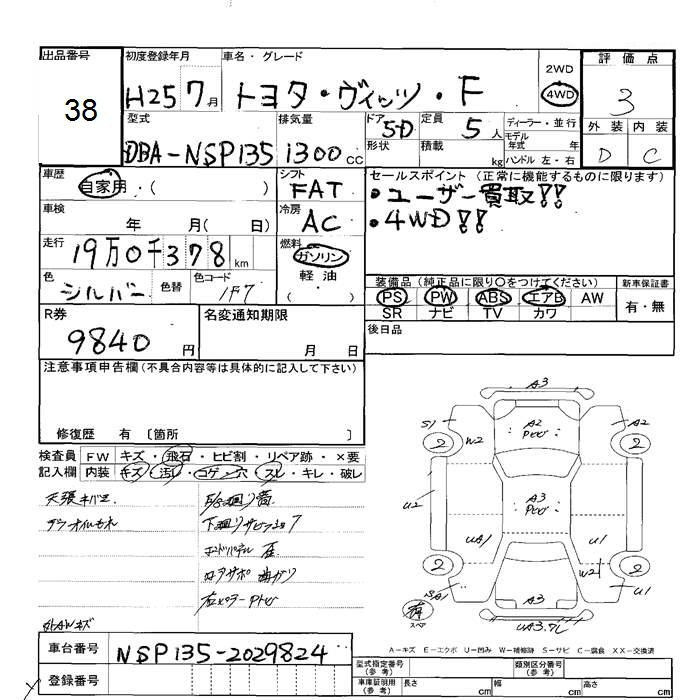 出品番号
38
初度登録年月
H25 7月
車名・グレード
トヨタ・ヴィッツ・F
2WD
4WD
評価点
3
外装 内装
D C
型式
DBA-NSP135
排気量
1300cc
ドア 5D
形状
定員 5人
積載 kg
ディーラー・並行
モデル年式 年
ハンドル 左・右
車歴
自家用・( )
シフト
FAT
セールスポイント (正常に機能するものに限ります)
・ユーザー買取!!
・4WD!!
車検
年 月( 日)
冷房
AC
走行
19万0千378km
燃料
ガソリン
軽油
( )
色
シルバー
色替
色コード
1F7
装備品 (純正品に限り〇をつけてください)
PS PW ABS エアB AW
SR ナビ TV カワ
新車保証書
有・無
R券
9840円
名変通知期限
月 日
後日品
注意事項申告欄(不具合内容等は具体的に記入して下さい)
修復歴 有 〔箇所 〕
検査員記入欄
FW キズ・飛石・ヒビ割・リペア跡・×要
内装 キズ・汚れ・コゲ・穴・スレ・キレ・破レ
下廻りサビ
A3
S1
A2
W2
A2
2
2
U2
A3
UA1
U1
W2
2
2
SA1
U1
A3
スペア
A=キズ E=エクボ U=凹み W=補修跡 S=サビ C=腐食 XX=交換済
車台番号
NSP135-2029824
登録番号
型式指定番号
(参考)
類別区分番号
(参考)
車庫証明用
(参考)
長さ cm
幅 cm
高さ cm